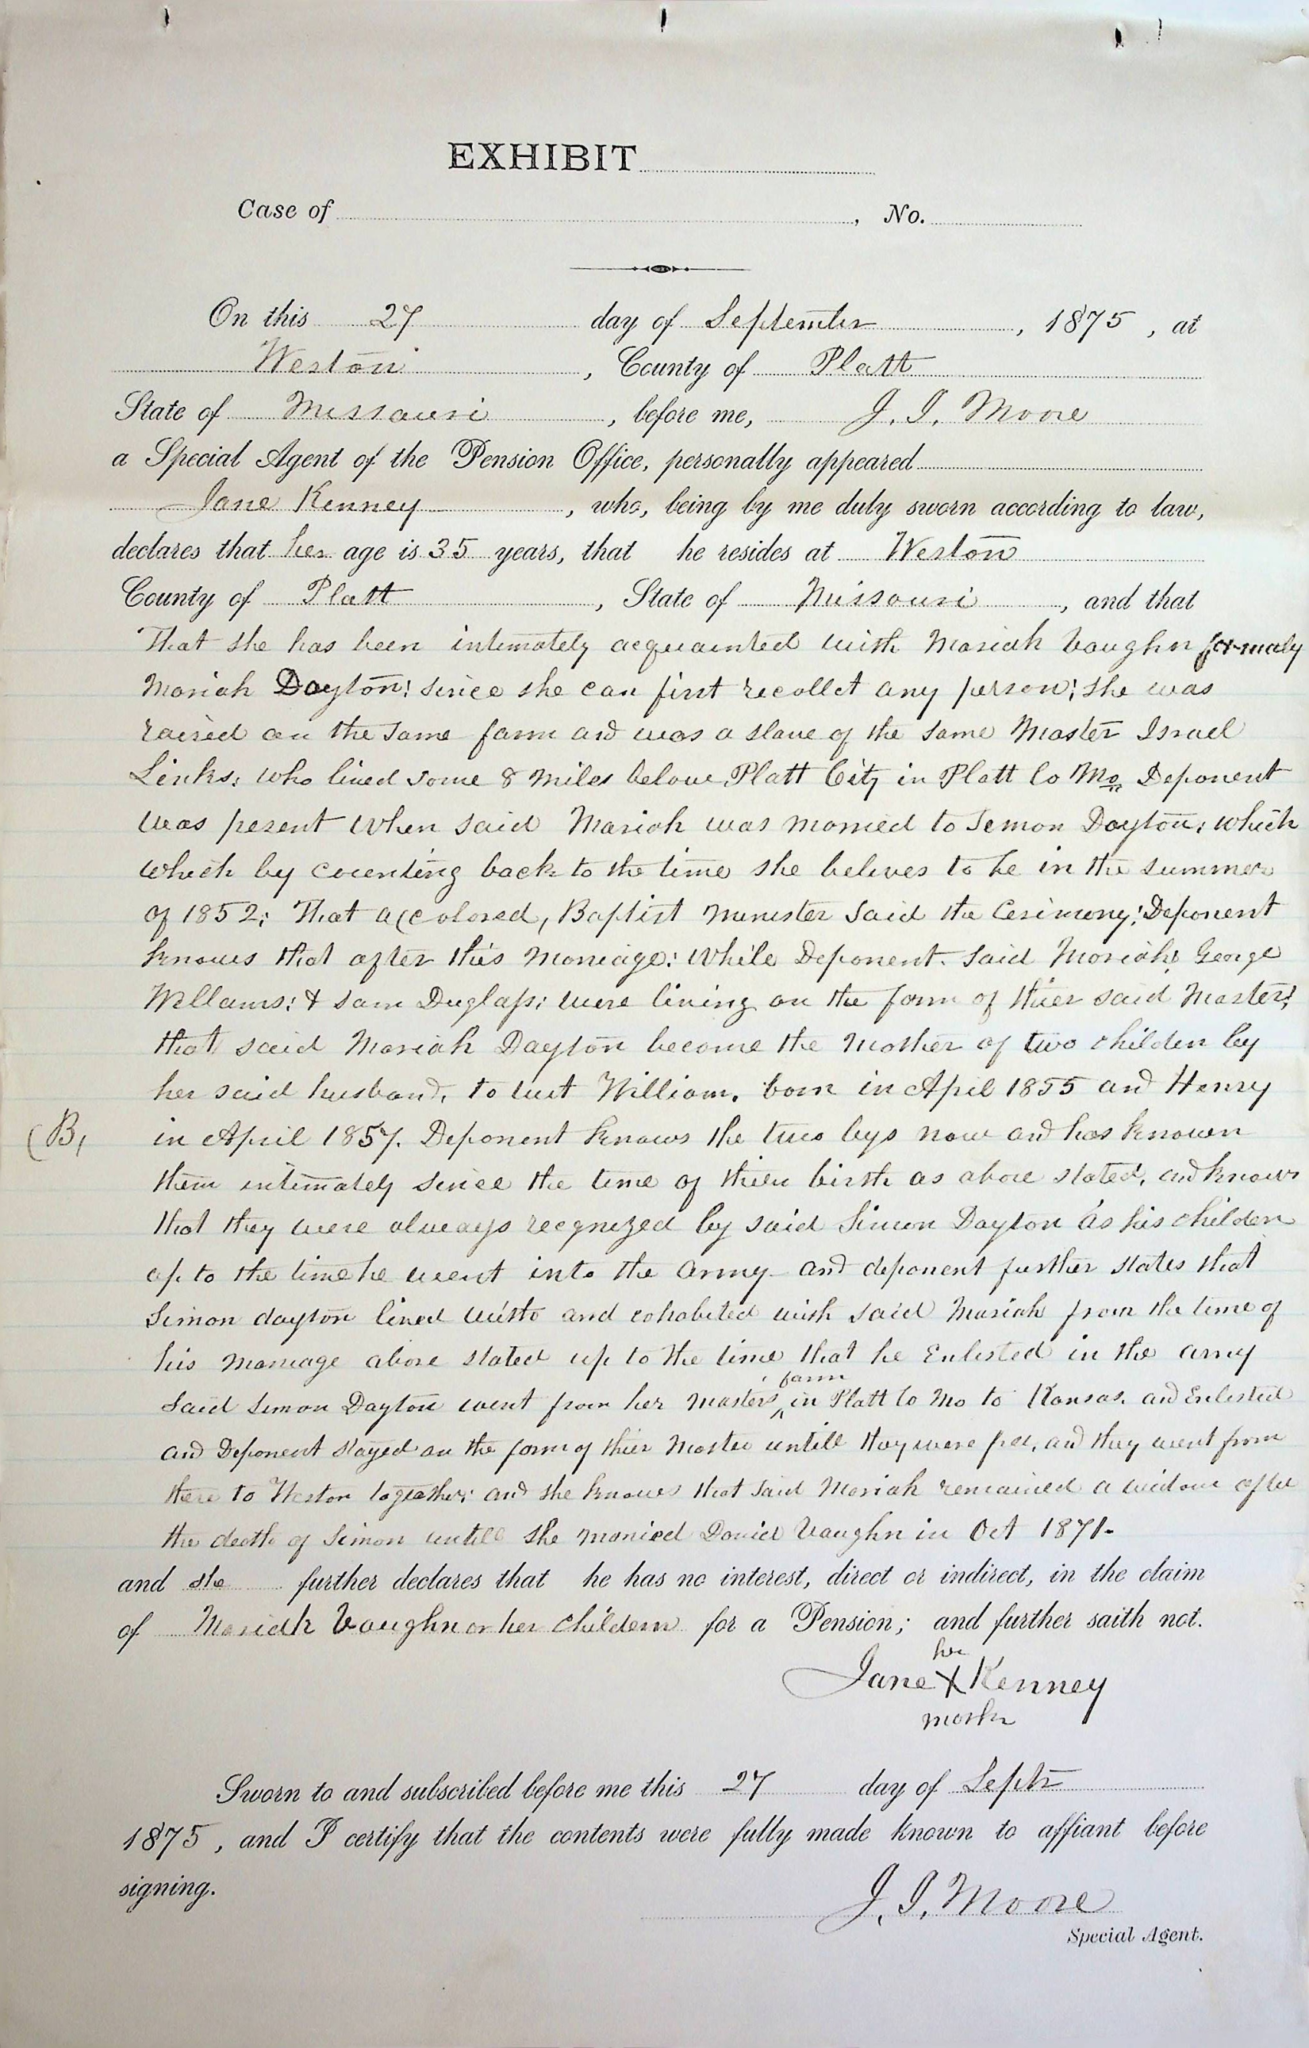 EXHIBIT
Case of , No.
On this 27 day of September, 1875, at
Weston, County of Platt
State of Missouri, before me, J. I. Moore
a Special Agent of the Pension Office, personally appeared
Jane Kenney, who, being by me duly sworn according to law,
declares that her age is 35 years, that he resides at Weston
County of Platt, State of Missouri, and that
That she has been intimately acquainted with Mariah Vaughn formaly
Mariah Dayton; since she can first recollet any person; she was
raised on the same farm and was a slave of the same Master Israel
Links; who lived some 8 miles below Platt City in Platt Co Mo Deponent
was pesent when said Mariah was married to Semon Dayton; which
which by counting back to the time she belives to be in the summer
of 1852; That a (colored, Baptist Menester said the Cerimony; Deponent
knows that after this marriage; while Deponent. said Mariah, George
Willams; & Sam Duglass; were living on the farm of thier said Master;
that said Mariah Dayton become the Mother of two childen by
her said husband, to wit William. born in April 1855 and Henry
(B, in April 1857. Deponent knows the two boys now and has known
them intimately since the time of thier birth as above stated, and knows
that they were always recgnized by said Simon Dayton as his childen
up to the time he went into the army and deponent further states that
Simon dayton lived with and cohabited with said Mariah from the time of
his marriage above stated up to the time that he Enlisted in the army
Said Simon Dayton went from her Masters farm in Platt Co Mo to Kansas. and Enlested
and Deponent stayed on the farm of thier Master untill they were free, and they went from
there to Weston togeather; and she knows that said Mariah remained a widow after
the death of Simon untill she married David Vaughn in Oct 1871-
and she further declares that he has no interest, direct or indirect, in the claim
of Mariah Vaughn or her childern for a Pension; and further saith not.
her
Jane X Kenney
mark
Sworn to and subscribed before me this 27 day of Sept
1875, and I certify that the contents were fully made known to affiant before
signing.
J. I. Moore
Special Agent.